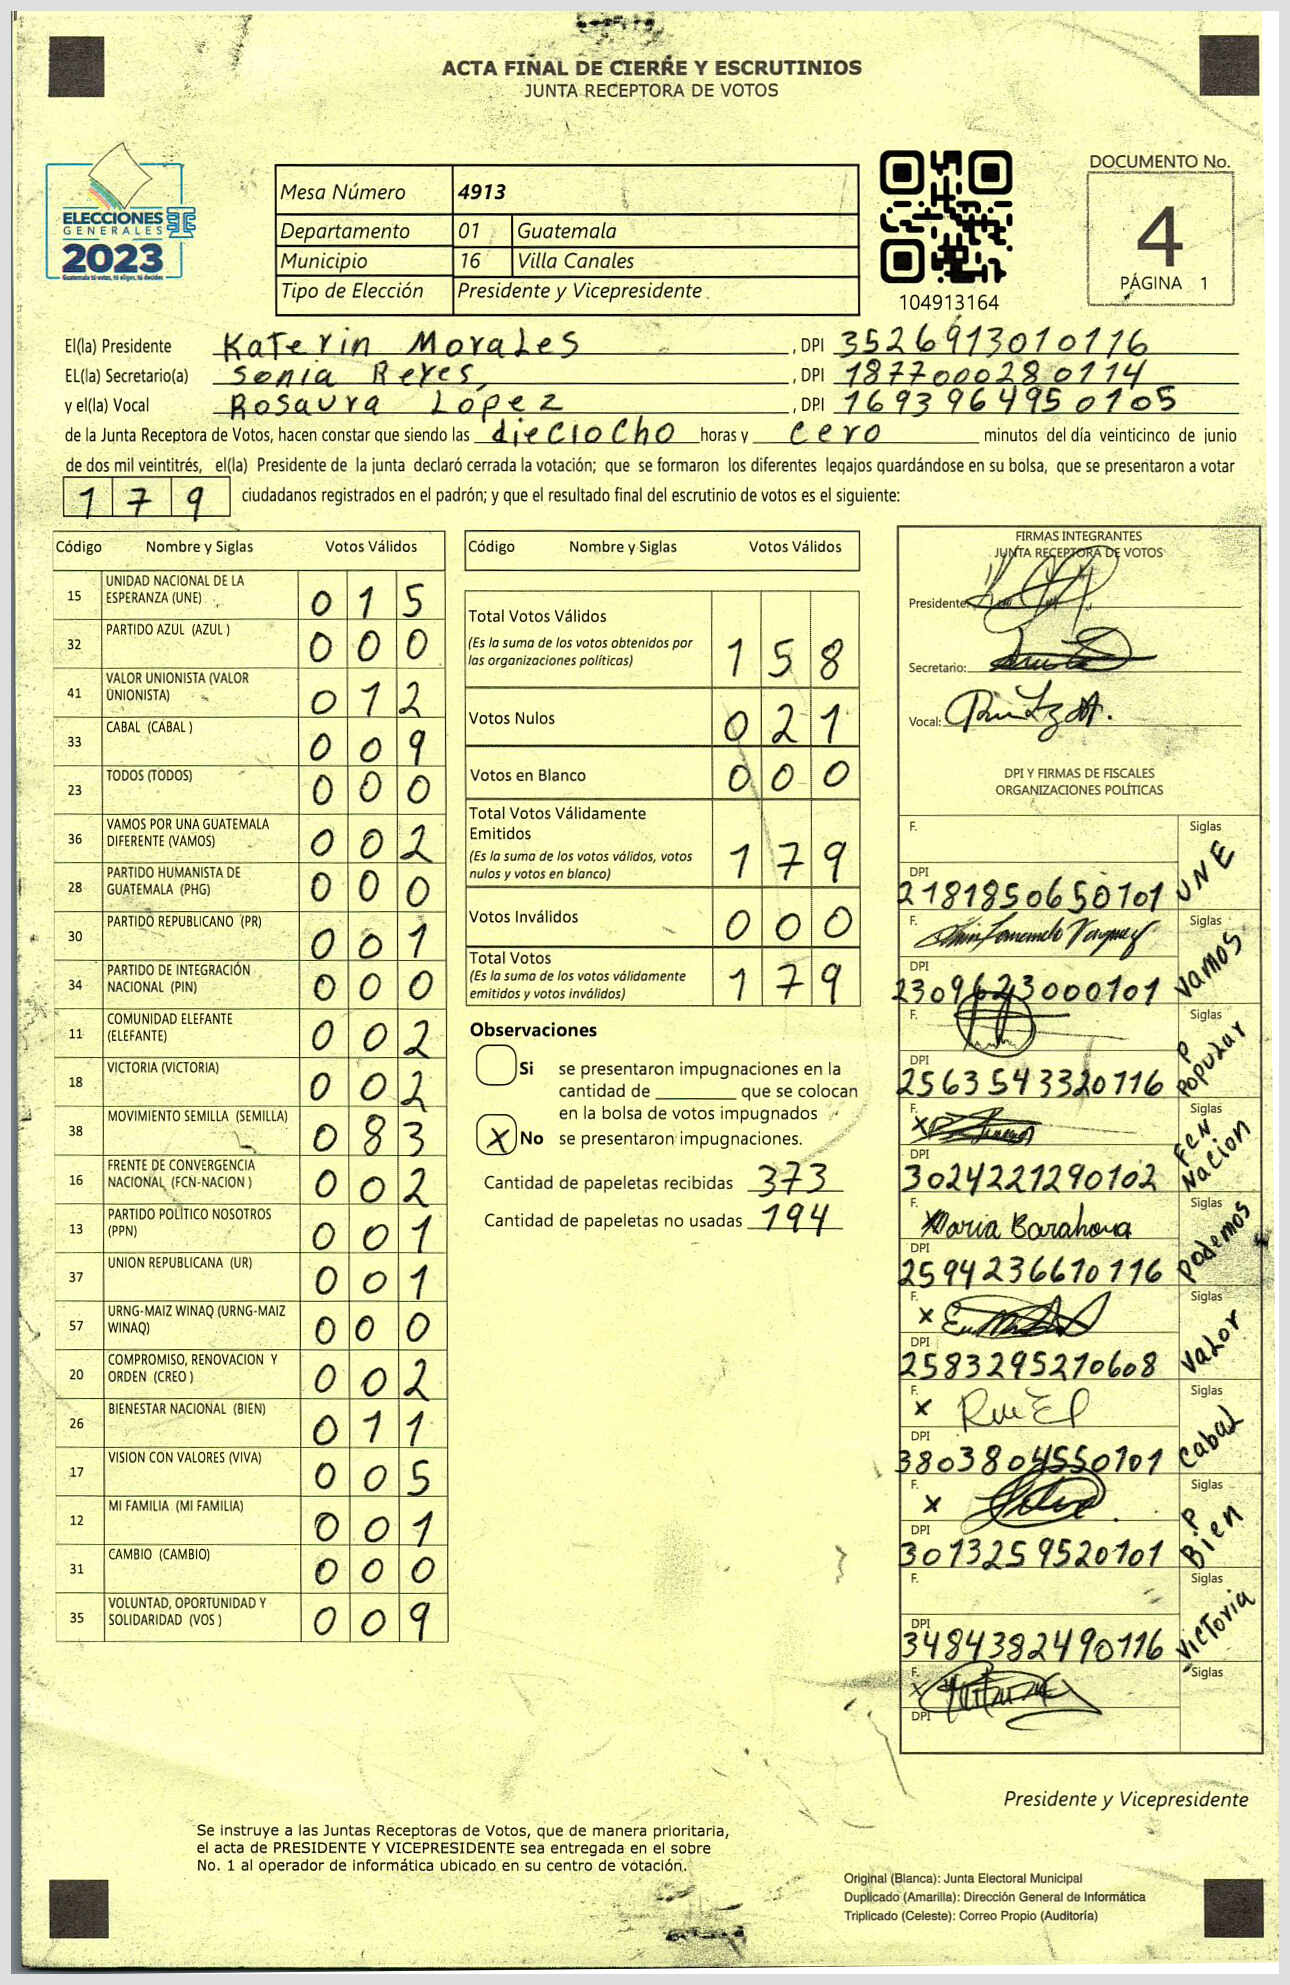 ACTA FINAL DE CIERRE Y ESCRUTINIOS
JUNTA RECEPTORA DE VOTOS
ELECCIONES
GENERALES
2023
Guatemala tú votas, tú eliges, tú decides
Mesa Número 4913
Departamento 01 Guatemala
Municipio 16 Villa Canales
Tipo de Elección Presidente y Vicepresidente
104913164
DOCUMENTO No.
4
PÁGINA 1
El(la) Presidente Katerin Morales , DPI 3526913010116
EL(la) Secretario(a) Sonia Reyes , DPI 1877000280114
y el(la) Vocal Rosaura López , DPI 1693964950105
de la Junta Receptora de Votos, hacen constar que siendo las dieciocho horas y cero minutos del día veinticinco de junio
de dos mil veintitrés, el(la) Presidente de la junta declaró cerrada la votación; que se formaron los diferentes legajos guardándose en su bolsa, que se presentaron a votar
179 ciudadanos registrados en el padrón; y que el resultado final del escrutinio de votos es el siguiente:
Código Nombre y Siglas Votos Válidos
15 UNIDAD NACIONAL DE LA ESPERANZA (UNE) 015
32 PARTIDO AZUL (AZUL ) 000
41 VALOR UNIONISTA (VALOR UNIONISTA) 012
33 CABAL (CABAL ) 009
23 TODOS (TODOS) 000
36 VAMOS POR UNA GUATEMALA DIFERENTE (VAMOS) 002
28 PARTIDO HUMANISTA DE GUATEMALA (PHG) 000
30 PARTIDO REPUBLICANO (PR) 001
34 PARTIDO DE INTEGRACIÓN NACIONAL (PIN) 000
11 COMUNIDAD ELEFANTE (ELEFANTE) 002
18 VICTORIA (VICTORIA) 002
38 MOVIMIENTO SEMILLA (SEMILLA) 083
16 FRENTE DE CONVERGENCIA NACIONAL (FCN-NACION ) 002
13 PARTIDO POLÍTICO NOSOTROS (PPN) 001
37 UNION REPUBLICANA (UR) 001
57 URNG-MAIZ WINAQ (URNG-MAIZ WINAQ) 000
20 COMPROMISO, RENOVACION Y ORDEN (CREO ) 002
26 BIENESTAR NACIONAL (BIEN) 011
17 VISION CON VALORES (VIVA) 005
12 MI FAMILIA (MI FAMILIA) 001
31 CAMBIO (CAMBIO) 000
35 VOLUNTAD, OPORTUNIDAD Y SOLIDARIDAD (VOS ) 009
Código Nombre y Siglas Votos Válidos
Total Votos Válidos
(Es la suma de los votos obtenidos por
las organizaciones políticas) 158
Votos Nulos 021
Votos en Blanco 000
Total Votos Válidamente
Emitidos
(Es la suma de los votos válidos, votos
nulos y votos en blanco) 179
Votos Inválidos 000
Total Votos
(Es la suma de los votos válidamente
emitidos y votos inválidos) 179
Observaciones
Si se presentaron impugnaciones en la
cantidad de ________ que se colocan
en la bolsa de votos impugnados
X No se presentaron impugnaciones.
Cantidad de papeletas recibidas 373
Cantidad de papeletas no usadas 194
FIRMAS INTEGRANTES
JUNTA RECEPTORA DE VOTOS
Presidente:
Secretario:
Vocal:
DPI Y FIRMAS DE FISCALES
ORGANIZACIONES POLÍTICAS
F. Siglas UNE
DPI 2181850650101
F. Siglas Vamos
DPI 2309623000101
F. Siglas P Popular
DPI 2563543320116
F. X Siglas FCN Nacion
DPI 3024221290102
F. Maria Barahona Siglas Podemos
DPI 2594236610116
F. X Siglas Valor
DPI 2583295210608
F. X Siglas Cabal
DPI 3803804550101
F. X Siglas P Bien
DPI 3013259520101
F. Siglas Victoria
DPI 3484382490116
F. X Siglas
DPI
Presidente y Vicepresidente
Se instruye a las Juntas Receptoras de Votos, que de manera prioritaria,
el acta de PRESIDENTE Y VICEPRESIDENTE sea entregada en el sobre
No. 1 al operador de informática ubicado en su centro de votación.
Original (Blanca): Junta Electoral Municipal
Duplicado (Amarilla): Dirección General de Informática
Triplicado (Celeste): Correo Propio (Auditoría)